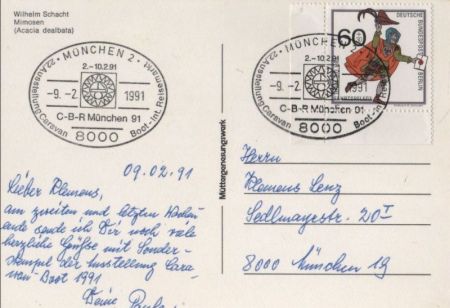 Wilhelm Schacht
Mimosen
(Acacia dealbata)
· MÜNCHEN 2 ·
22. Ausstellung Caravan - Boot - Int. Reisemarkt
2.-10.2.91
-9.-2. 1991
C-B-R München 91
8000
MÜNCHEN
22. Ausstellung Caravan Boot - Int. Reise
2.-10.2.91
-9.-2. 1991
C-B-R München 91
8000
60
DEUTSCHE BUNDESPOST BERLIN
Müttergenesungswerk
09.02.91
Lieber Klemens,
am zweiten und letzten Wochen
ende sende ich Dir noch viele
herzliche Grüße mit Sonder-
stempel der Ausstellung Cara-
van-Boot 1991
Deine
Herrn
Klemens Lenz
Sedlmayrstr. 20 I
8000 München 19